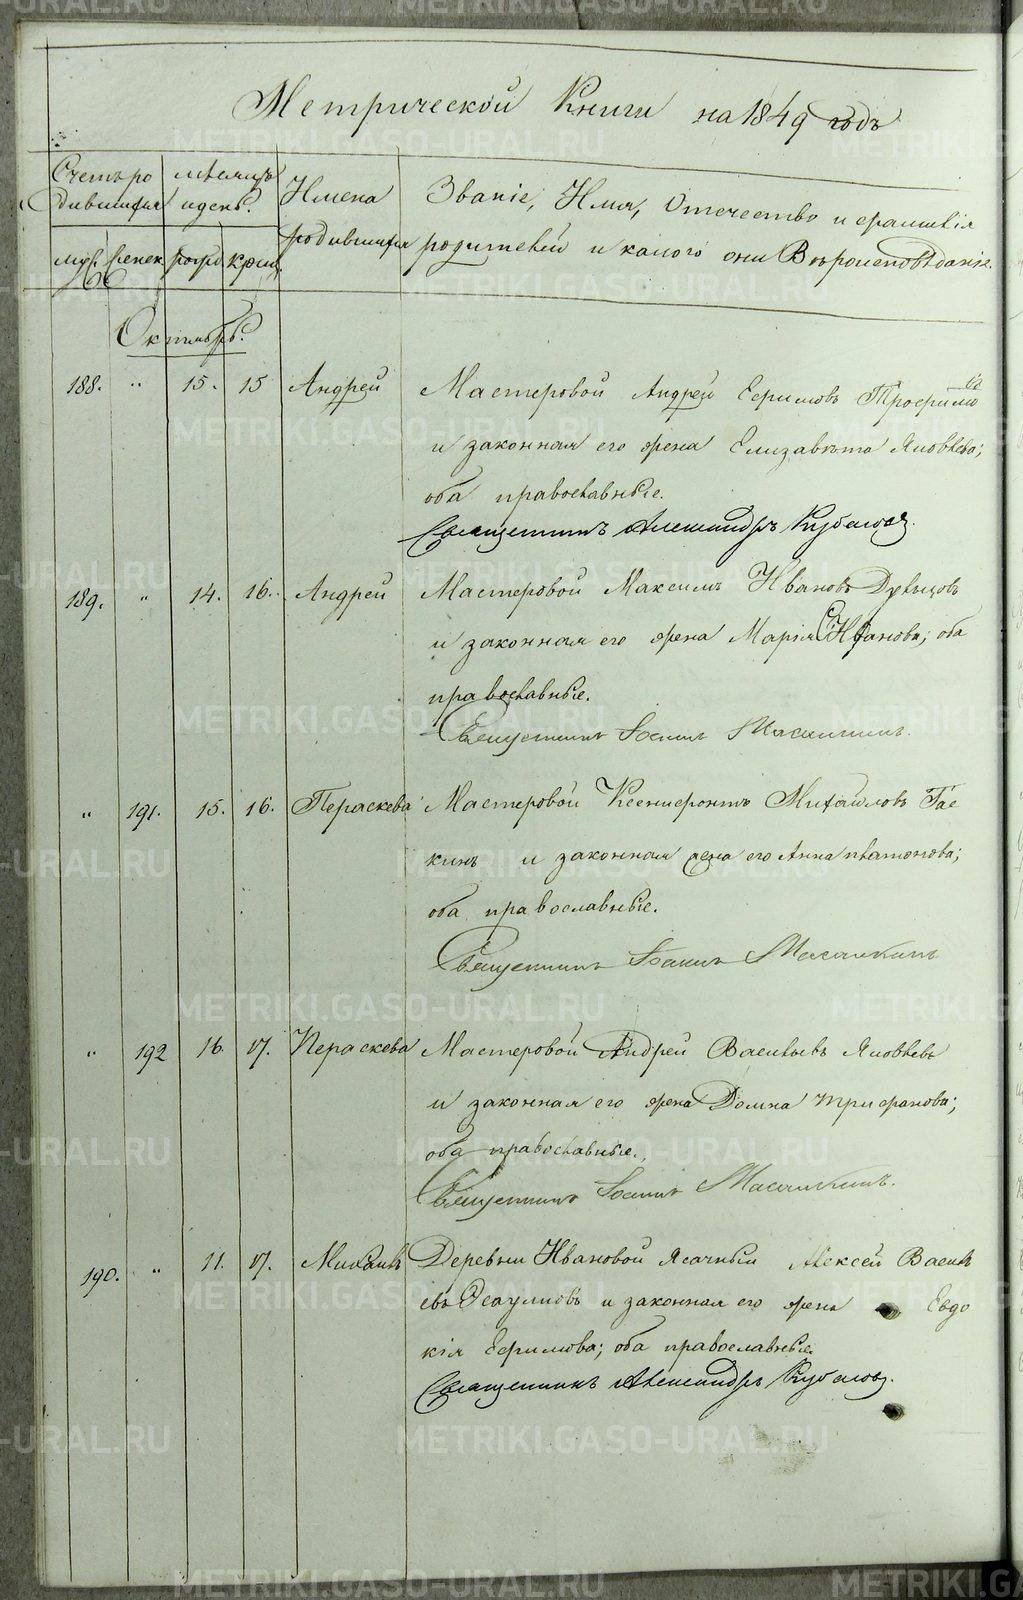 Метрической Книги на 1849 годъ
Счетъ ро мѣсяцъ Имена Званіе, Имя, Отечество и фамилія
дившихся и день. родившихся родителей и какого они Вѣроисповѣданія.
муж женск рожд крещ.
Октябрь.
188. " 15. 15 Андрей Мастеровой Андрей Ефимовъ Трофимо
въ
и законная его жена Елизавѣта Яковлева;
оба православные.
Священникъ Александръ
189. " 14. 16. Андрей Мастеровой Максимъ Ивановъ
и законная его жена Марія Иванова; оба
православные.
Священникъ Іоаннъ
" 191. 15. 16. Пераскева Мастеровой Ксенифонтъ Михайловъ Гае
кинъ и законная жена его Анна платонова;
оба православные.
Священникъ Іоаннъ
" 192 16. 17. Пераскева Мастеровой Андрей Васильевъ Яковлевъ
и законная его жена Домна трифанова;
оба православные.
Священникъ Іоаннъ
190. " 11. 17. Михаилъ Деревни Ивановой Ясачный Алексей Василь
евъ Есауловъ и законная его жена Евдо
кія Ефимова; оба православные.
Священникъ Александръ
METRIKI.GASO-URAL.RU